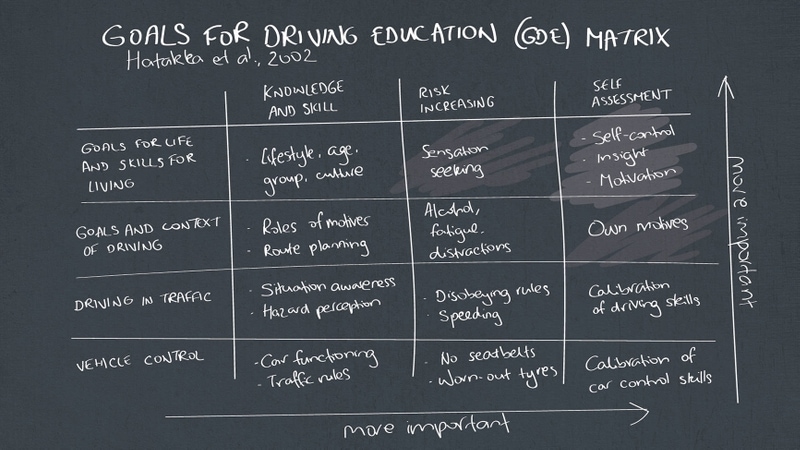 GOALS FOR DRIVING EDUCATION (GDE) MATRIX
Hatakka et al., 2002
KNOWLEDGE
AND SKILL
RISK
INCREASING
SELF
ASSESSMENT
GOALS FOR LIFE
AND SKILLS FOR
LIVING
- Lifestyle, age,
group, culture
Sensation
seeking
- Self-control
- Insight
- Motivation
GOALS AND CONTEXT
OF DRIVING
- Roles of motives
- Route planning
Alcohol,
fatigue,
distractions
Own motives
DRIVING IN TRAFFIC
- Situation awareness
- Hazard perception
- Disobeying rules
- Speeding
Calibration
of driving skills
VEHICLE CONTROL
- Car functioning
- Traffic rules
- No seatbelts
- Worn-out tyres
Calibration of
car control skills
more important
more important